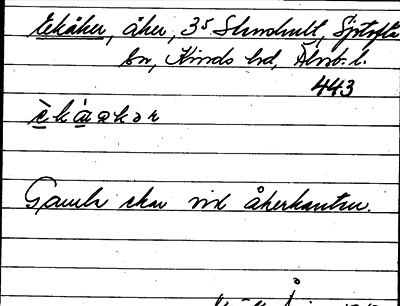 Ekåker, åker, 3⁵ Slurshult, Sjötofta
sn, Kinds hd, Älvsb. l.
443
è k å̀ a k ə r
Gamla ekar vid åkerkanten.